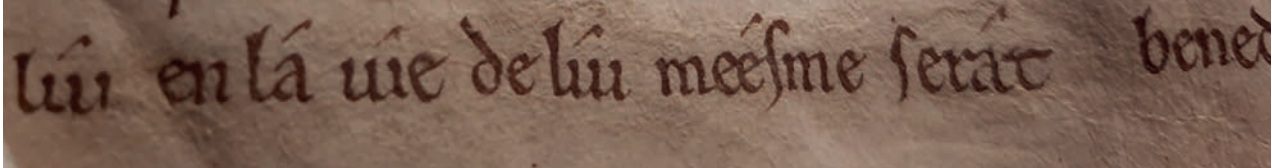 lúi en lá uíe de lúi meésme serát bened